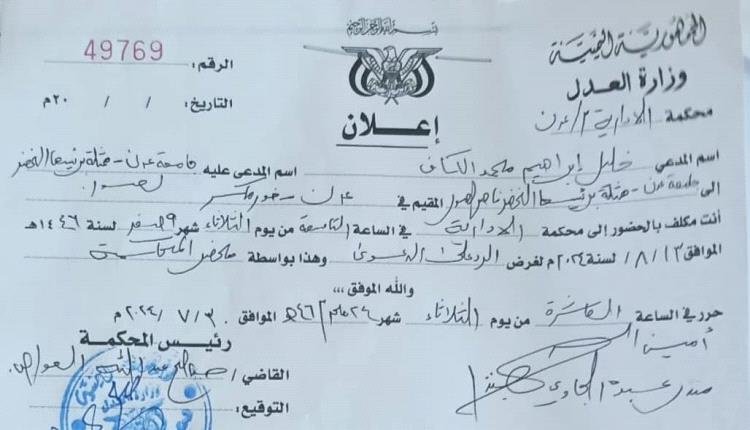 بسم الله الرحمن الرحيم
الجمهورية اليمنية
وزارة العدل
محكمة الادارية م/عدن
الرقم: 49769
التاريخ: / / ٢٠م
إعلان
اسم المدعي خليل إبراهيم محمد الكاف اسم المدعى عليه جامعة عدن - ممثلة برئيسها الخضر لصور
إلى جامعة عدن - ممثلة برئيسها الخضر ناصر لصور المقيم في عدن - خورمكسر
أنت مكلف بالحضور إلى محكمة الادارية في الساعة التاسعة من يوم الثلاثاء شهر ٩ صفر لسنة ١٤٤٦هـ
الموافق ١٣/ ٨/ لسنة ٢٠٢٤م لغرض الرد على الدعوى وهذا بواسطة محضر المحكمة
والله الموفق ،،،
حرر في الساعة العاشرة من يوم الثلاثاء شهر ٢٤ محرم /٤٦هـ الموافق ٣٠/ ٧/ ٢٠٢٤م
أمين السر
رئيس المحكمة
القاضي/ صالح
عبده
التوقيع: